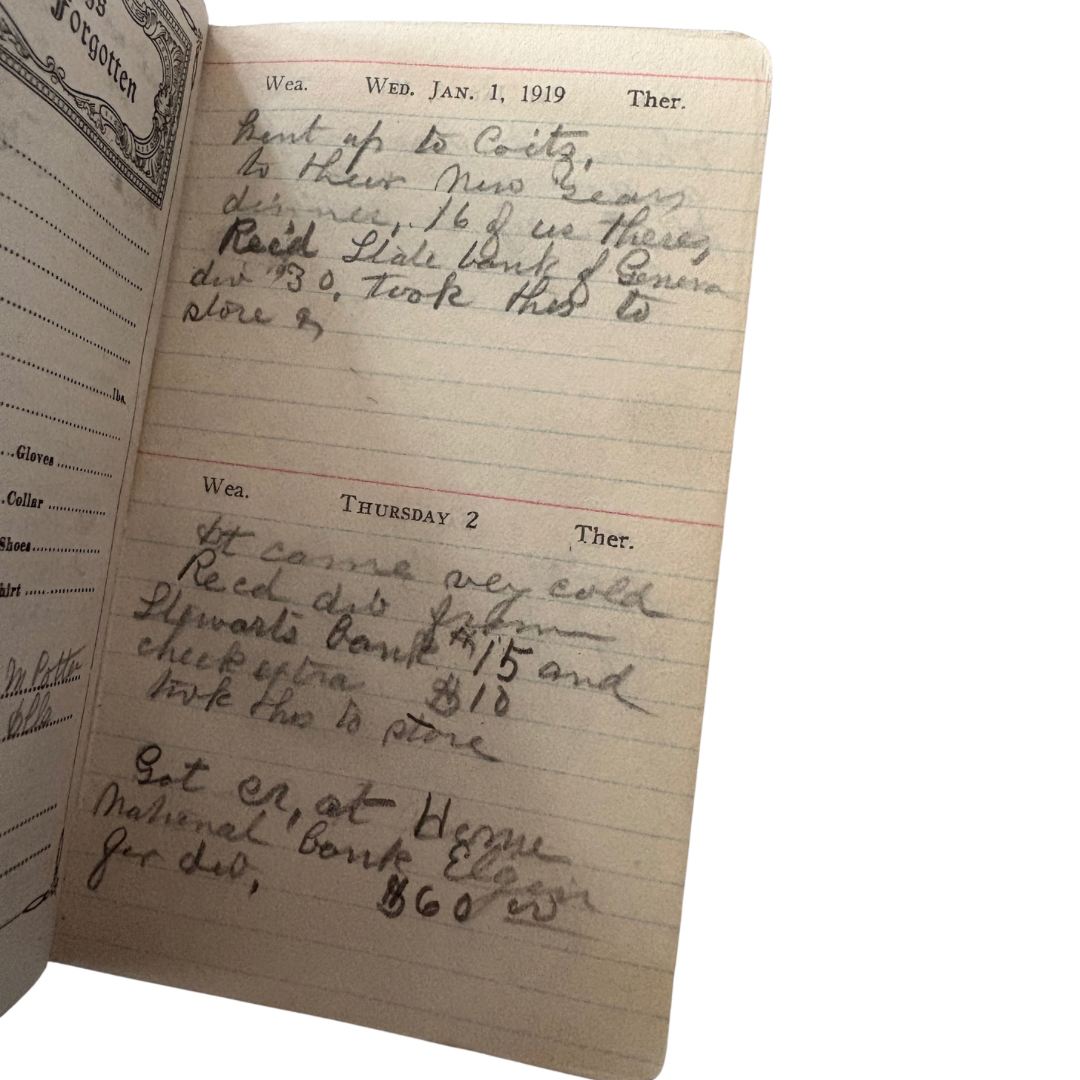 Forgotten
lbs.
Gloves
Collar
Shoes
M Potter
Ella
Wea. WED. JAN. 1, 1919 Ther.
Went up to Coits,
to their New Years
dinner, 16 of us there,
Rec'd State bank of Geneva
div $30, took this to
store
Wea. THURSDAY 2 Ther.
It came very cold
Recd div from
Stewarts bank $15 and
check extra $10
took this to store
Got cr, at Home
National bank Elgin
for div, $60 00